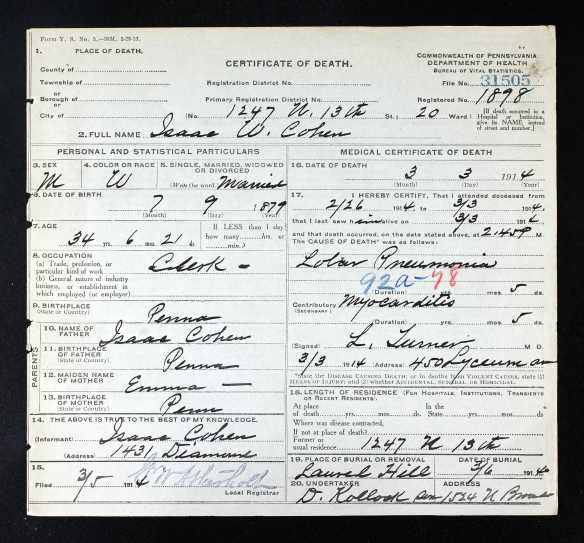 Form V. S. No. 5.—50M. 3-29-13.
1. PLACE OF DEATH.
CERTIFICATE OF DEATH.
COMMONWEALTH OF PENNSYLVANIA
DEPARTMENT OF HEALTH
BUREAU OF VITAL STATISTICS.
County of
Township of
Registration District No.
File No. 31505
or
Borough of
Primary Registration District No.
Registered No. 1898
or
City of
(No. 1247 N. 13th St.; 20 Ward)
[If death occurred in a Hospital or Institution, give its NAME, instead of street and number.]
2. FULL NAME Isaac W. Cohen
PERSONAL AND STATISTICAL PARTICULARS
3. SEX M
4. COLOR or RACE W
5. SINGLE, MARRIED, WIDOWED or DIVORCED
(Write the word) Married
6. DATE OF BIRTH
7 9 1879
(Month) (Day) (Year)
7. AGE
34 yrs. 6 mos. 21 ds.
If LESS than 1 day how many hrs. or min.?
8. OCCUPATION
(a) Trade, profession, or particular kind of work
(b) General nature of industry business, or establishment in which employed (or employer)
Clerk
9. BIRTHPLACE
(State or Country)
Penna
PARENTS
10. NAME OF FATHER
Isaac Cohen
11. BIRTHPLACE OF FATHER
(State or Country)
Penna
12. MAIDEN NAME OF MOTHER
Emma —
13. BIRTHPLACE OF MOTHER
(State or Country)
Penn
14. THE ABOVE IS TRUE TO THE BEST OF MY KNOWLEDGE.
(Informant) Isaac Cohen
(Address) 1431 Diamond
15.
Filed 3/5 1914
Local Registrar
MEDICAL CERTIFICATE OF DEATH
16. DATE OF DEATH
3 3 1914
(Month) (Day) (Year)
17. I HEREBY CERTIFY, That I attended deceased from
2/26 1914, to 3/3 1914,
that I last saw him alive on 3/3 1914
and that death occurred, on the date stated above, at 2.45 P M.
The CAUSE OF DEATH* was as follows:
Lobar Pneumonia
92a-78
(Duration) yrs. mos. 5 ds.
Contributory Myocarditis
(SECONDARY)
(Duration) yrs. mos. 5 ds.
(Signed) L. Turner M D.
3/3 1914 (Address) 450 Lyceum av
*State the DISEASE CAUSING DEATH; or in deaths from VIOLENT CAUSES, state (1) MEANS OF INJURY; and (2) whether ACCIDENTAL, SUICIDAL or HOMICIDAL.
18. LENGTH OF RESIDENCE (FOR HOSPITALS, INSTITUTIONS, TRANSIENTS OR RECENT RESIDENTS).
At place of death yrs. mos. ds. In the State yrs. mos. ds.
Where was disease contracted,
If not at place of death?
Former or usual residence 1247 N 13th
19. PLACE OF BURIAL OR REMOVAL
Laurel Hill
DATE OF BURIAL
3/6 1914
20. UNDERTAKER
D. Kollock
ADDRESS
1524 N